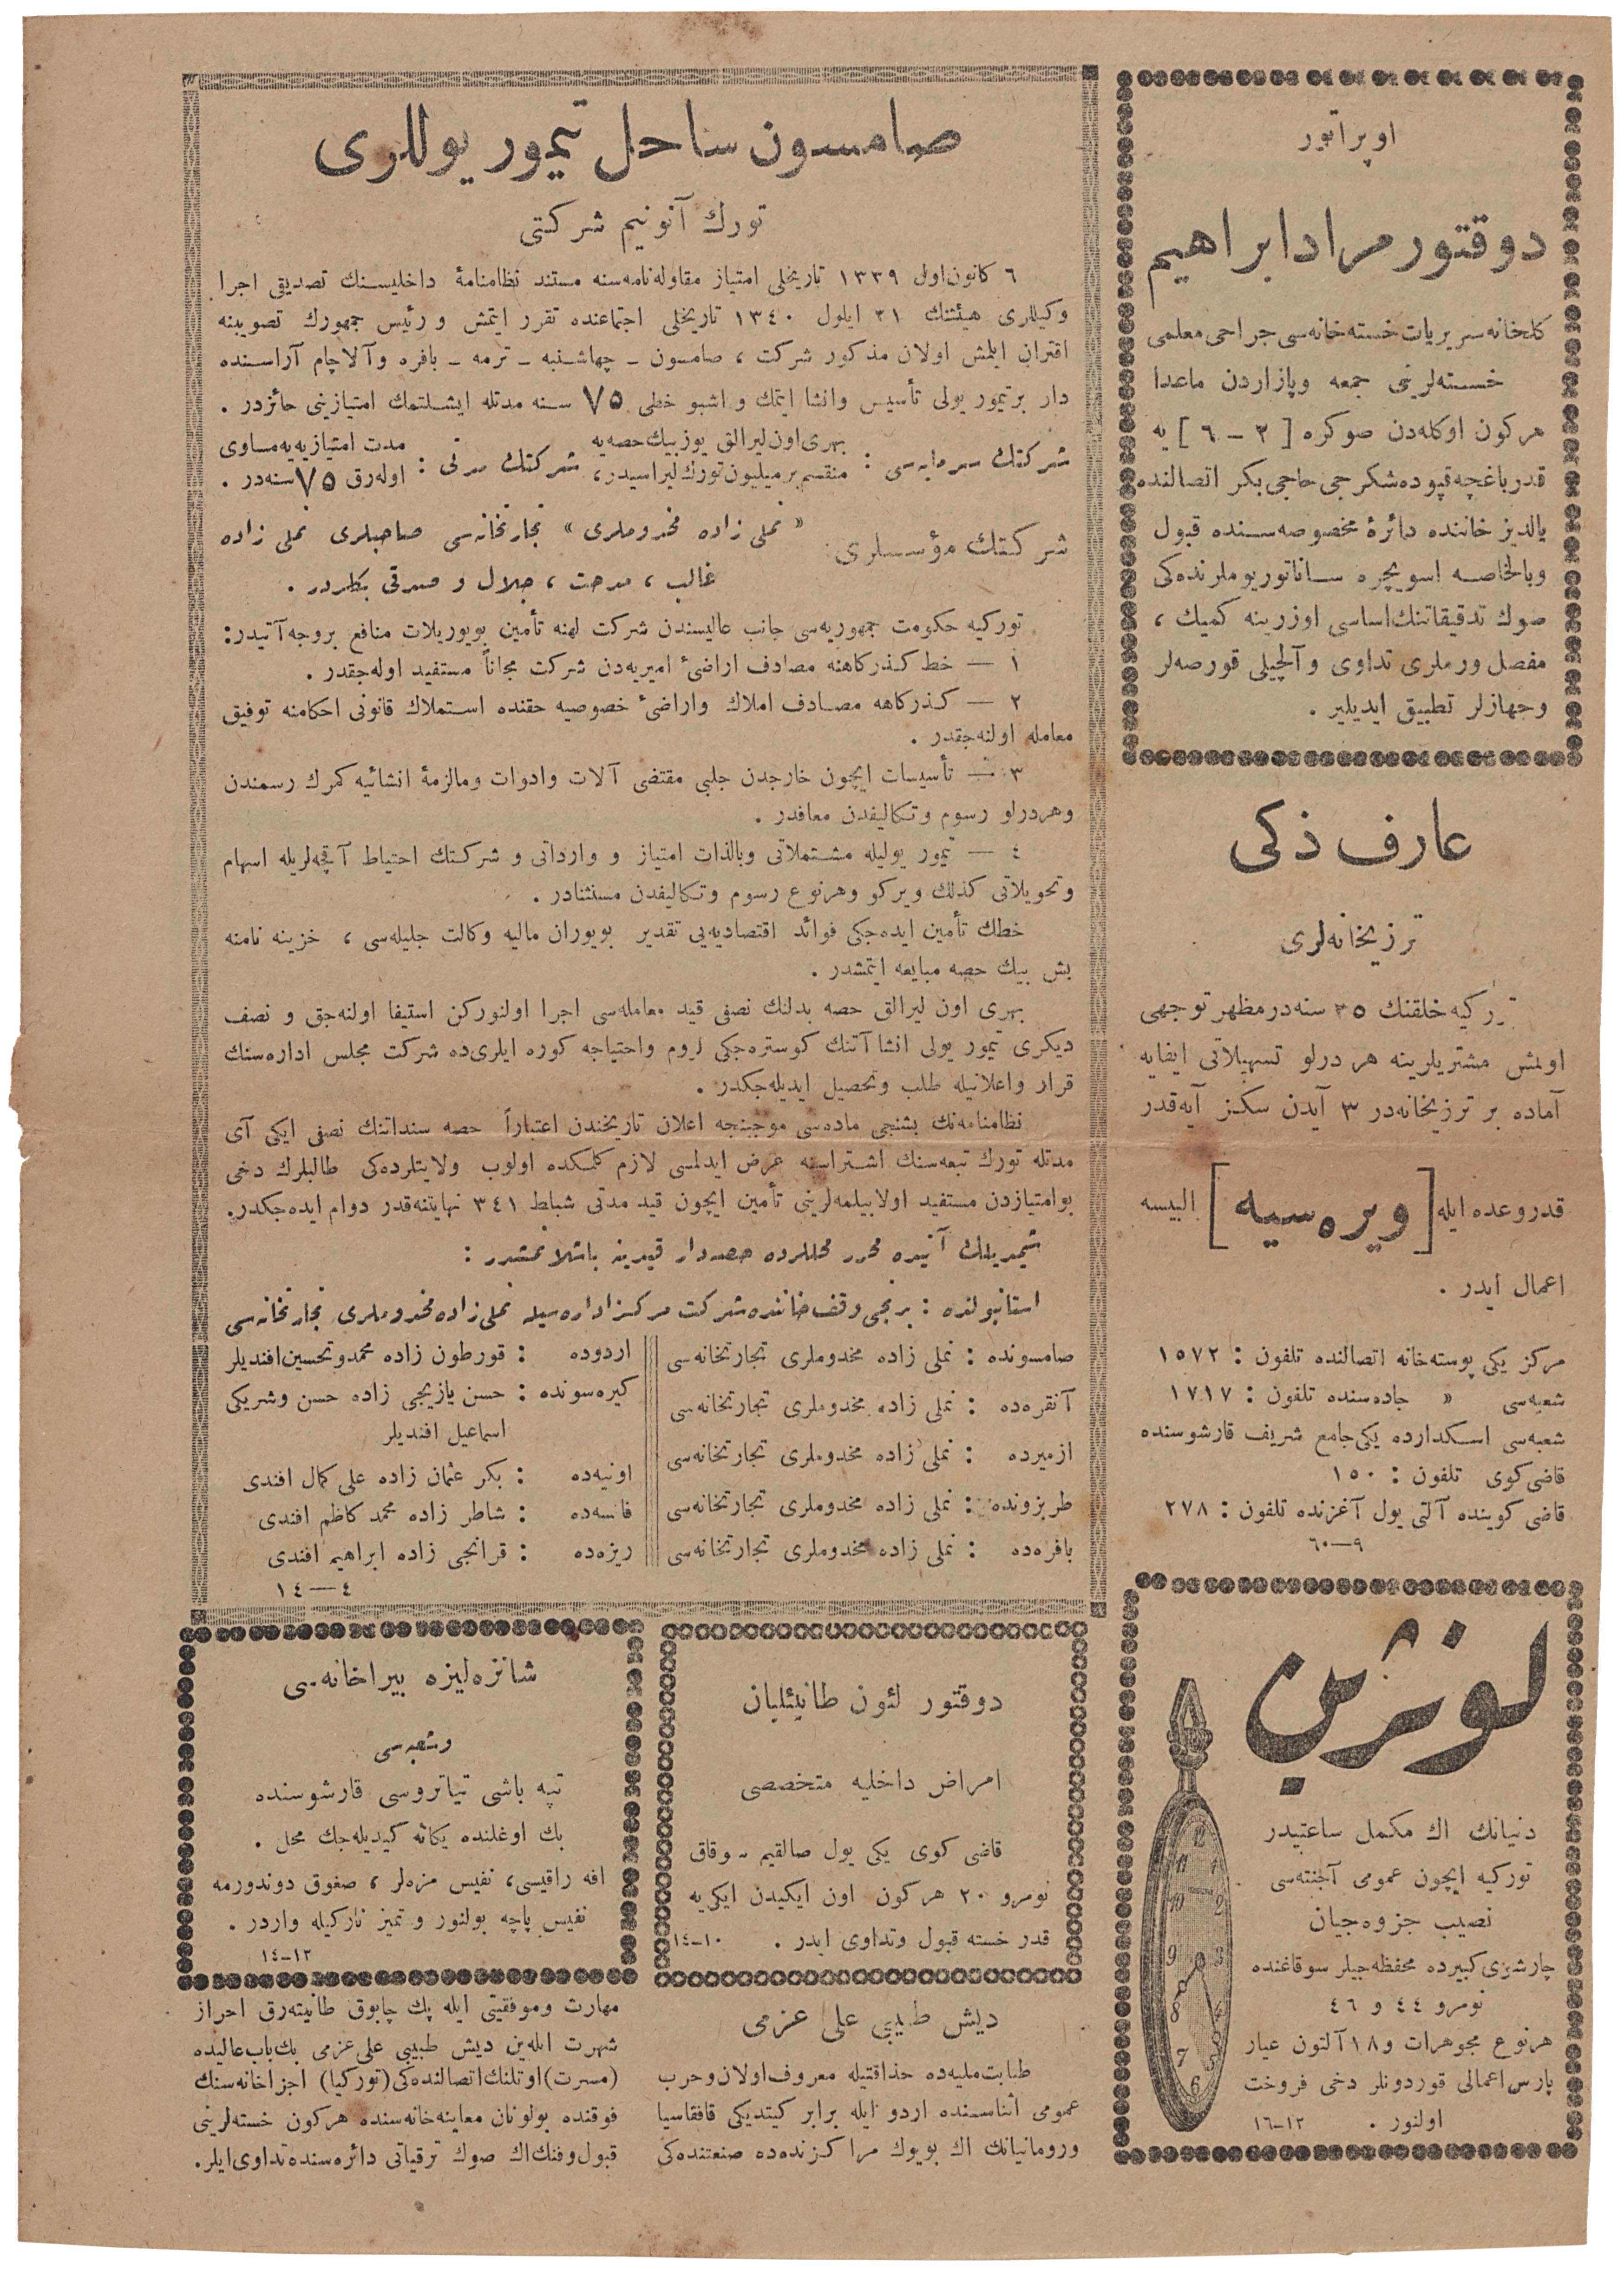 اوپراتور
دوقتور مراد ابراهیم
كلخانه سریریات خسته‌خانه‌سی جراحی معلمی
خسته‌لرینی جمعه وپازاردن ماعدا
هركون اوكله‌دن صوكره [ ٢ – ٦ ] یه
قدر باغچه قپوده شكرجی حاجی بكر اتصالنده
یالدیز خاننده دائرهٔ مخصوصه‌سنده قبول
وبالخاصه اسویچره ساناتوریوملرنده‌كی
صوك تدقیقاتنك اساسی اوزرینه كمیك ،
مفصل ورملری تداوی وآلچیلی قورصه‌لر
وجهازلر تطبیق ایدیلیر .
عارف ذكی
ترزیخانه‌لری
توركیه خلقنك ٣٥ سنه‌در مظهر توجهی
اولمش مشتریلرینه هر درلو تسهیلاتی ایفایه
آماده بر ترزیخانه‌در ٣ آیدن سكز آیه قدر
قدر وعده ایله [ ویره‌سیه ] البیسه
اعمال ایدر .
مركز یكی پوسته‌خانه اتصالنده تلفون : ١٥٧٢
شعبه‌سی » جاده‌سنده تلفون : ١٧١٧
شعبه‌سی اسكدارده یكی جامع شریف قارشوسنده
قاضی‌كوی تلفون : ١٥٠
قاضی كوینده آلتی یول آغزنده تلفون : ٢٧٨
٩—٦٠
لونژین
دنیانك اك مكمل ساعتیدر
توركیه ایچون عمومی آجنته‌سی
نصیب جزوه‌جیان
چارشوی كبیرده محفظه‌جیلر سوقاغنده
نومرو ٤٤ و ٤٦
هرنوع مجوهرات و ١٨ آلتون عیار
پارس اعمالی قوردونلر دخی فروخت
اولنور . ١٢–١٦
صامسون ساحل تیمور یوللری
تورك آنونیم شركتی
٦ كانون‌اول ١٣٣٩ تاریخلی امتیاز مقاوله‌نامه‌سنه مستند نظامنامهٔ داخلیسنك تصدیقی اجرا
وكیللری هیئتنك ٢١ ایلول ١٣٤٠ تاریخلی اجتماعنده تقرر ایتمش و رئیس جمهورك تصویبنه
اقتران ایلمش اولان مذكور شركت ، صامسون – چهارشنبه – ترمه – بافره وآلاچام آراسنده
دار برتیمور یولی تأسیس وانشا ایتمك و اشبو خطی ٧٥ سنه مدتله ایشلتمك امتیازینی حائزدر .
شركتك سرمایه‌سی : بهری اون لیرالق یوزبیك حصه‌یه منقسم بر میلیون تورك لیراسیدر ،
شركتك مدتی : مدت امتیازیه‌یه مساوی اوله‌رق ٧٥ سنه‌در .
شركتك مؤسسلری : « نملی زاده مخدوملری » تجارتخانه‌سی صاحبلری نملی زاده
غالب ، مدحت ، جلال و صدقی بكلردر .
توركیه حكومت جمهوریه‌سی جانب عالیسندن شركت لهنه تأمین بویوریلات منافع بروجه آتیدر :
١ — خط كذركاهنه مصادف اراضیٔ امیریه‌دن شركت مجاناً مستفید اوله‌جقدر .
٢ — كذركاهه مصادف املاك واراضیٔ خصوصیه حقنده استملاك قانونی احكامنه توفیق
معامله اولنه‌جقدر .
٣ — تأسیسات ایچون خارجدن جلبی مقتضی آلات وادوات ومالزمهٔ انشائیه كمرك رسمندن
وهردرلو رسوم وتكالیفدن معافدر .
٤ — تیمور یولیله مشتملاتی وبالذات امتیاز و وارداتی و شركتك احتیاط آقچه‌لریله اسهام
وتحویلاتی كذلك ویركو وهرنوع رسوم وتكالیفدن مستثنادر .
خطك تأمین ایده‌جكی فوائد اقتصادیه‌یی تقدیر بویوران مالیه وكالت جلیله‌سی ، خزینه نامنه
بش بیك حصه مبایعه ایتمشدر .
بهری اون لیرالق حصه بدلنك نصفی قید معامله‌سی اجرا اولنوركن استیفا اولنه‌جق و نصف
دیكری تیمور یولی انشاآتنك كوستره‌جكی لزوم واحتیاجه كوره ایلریده شركت مجلس اداره‌سنك
قرار واعلانیله طلب وتحصیل ایدیله‌جكدر .
نظامنامه‌نك بشنجی ماده‌سی موجبنجه اعلان تاریخندن اعتباراً حصه سنداتنك نصفی ایكی آی
مدتله تورك تبعه‌سنك اشتراسنه عرض ایدلمسی لازم كلمكده اولوب ولایتلرده‌كی طالبلرك دخی
بوامتیازدن مستفید اولابیلمه‌لرینی تأمین ایچون قید مدتی شباط ٣٤١ نهایتنه‌قدر دوام ایده‌جكدر.
شیمدیلك آتیده محرر محللرده حصه‌دار قیدینه باشلانمشدر :
استانبولده : برنجی وقف خاننده شركت مركز اداره‌سیله نملی زاده مخدوملری تجارتخانه‌سی
صامسونده : نملی زاده مخدوملری تجارتخانه‌سی
آنقره‌ده : نملی زاده مخدوملری تجارتخانه‌سی
ازمیرده : نملی زاده مخدوملری تجارتخانه‌سی
طربزونده : نملی زاده مخدوملری تجارتخانه‌سی
بافره‌ده : نملی زاده مخدوملری تجارتخانه‌سی
اردوده : قورطون زاده محمد وتحسین افندیلر
كیره‌سونده : حسن یازیجی زاده حسن وشریكی
اسماعیل افندیلر
اونیه‌ده : بكر عثمان زاده علی كمال افندی
فاتسه‌ده : شاطر زاده محمد كاظم افندی
ریزه‌ده : قرانجی زاده ابراهیم افندی
٤—١٤
دوقتور لئون طانیئلیان
امراض داخلیه متخصصی
قاضی كوی یكی یول صالقیم سوقاق
نومرو ٢٠ هركون اون ایكیدن ایكی‌یه
قدر خسته قبول وتداوی ایدر . ١٠–١٤
شانزه‌لیزه بیراخانه‌سی
وشعبه‌سی
تپه باشی تیاتروسی قارشوسنده
بك اوغلنده یكانه كیدیله‌جك محل .
افه راقیسی، نفیس مزه‌لر ، صغوق دوندورمه
نفیس پاچه بولنور و تمیز ناركیله واردر .
١٢–١٤
دیش طبیبی علی عزمی
طبابت ملیه‌ده حذاقتیله معروف اولان وحرب
عمومی أثناسنده اردو ایله برابر كیتدیكی قافقاسیا
ورومانیانك اك بویوك مراكزنده‌ده صنعتنده‌كی
مهارت وموفقیتی ایله پك چابوق طانیته‌رق احراز
شهرت ایله‌ین دیش طبیبی علی عزمی بك باب عالیده
(مسرت) اوتلنك اتصالنده‌كی (توركیا) اجزاخانه‌سنك
فوقنده بولونان معاینه‌خانه‌سنده هركون خسته‌لرینی
قبول وفنك اك صوك ترقیاتی دائره‌سنده تداوی ایلر.